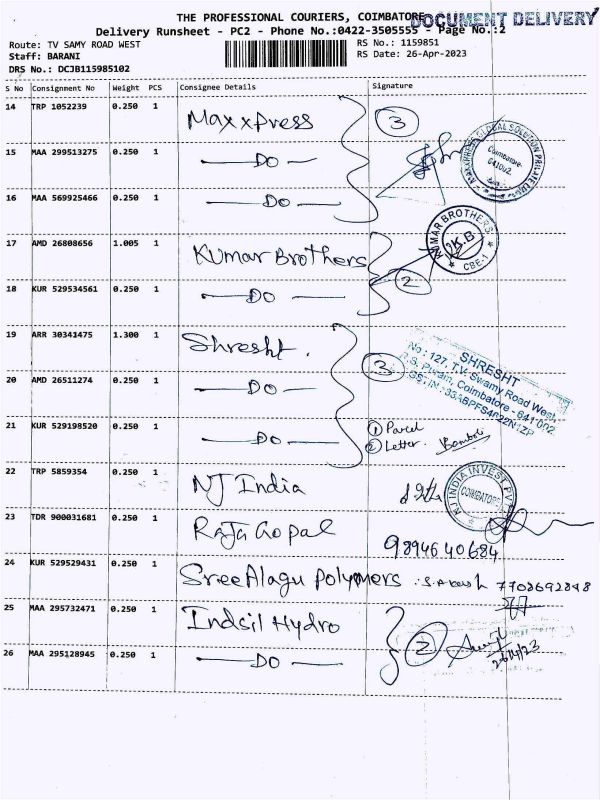 THE PROFESSIONAL COURIERS, COIMBATORE
DOCUMENT DELIVERY
Delivery Runsheet - PC2 - Phone No.:0422-3505555 - Page No.:2
Route: TV SAMY ROAD WEST
RS No.: 1159851
Staff: BARANI
RS Date: 26-Apr-2023
DRS No.: DCJB115985102
S No Consignment No Weight PCS Consignee Details Signature
14 TRP 1052239 0.250 1 Maxxpress 3
15 MAA 299513275 0.250 1 — DO —
MAXXPRESS GLOBAL SOLUTION PRIVATE LIMITED
Coimbatore
641002
16 MAA 569925466 0.250 1 — DO —
17 AMD 26808656 1.005 1 Kumar Brothers
KUMAR BROTHERS
K.B.
CBE-1
18 KUR 529534561 0.250 1 — DO — 2
19 ARR 30341475 1.300 1 Shresht . 3
SHRESHT
No : 127, T.V. Swamy Road West
R.S. Puram, Coimbatore - 641 002.
20 AMD 26511274 0.250 1 — DO —
21 KUR 529198520 0.250 1 — DO —
1 Parcel
2 Letter.
22 TRP 5859354 0.250 1 NJ India
NJ INDIA INVEST PVT
COIMBATORE
23 TDR 900031681 0.250 1 Raja Gopal 9894640684
24 KUR 529529431 0.250 1 Sree Alagu Polymers . S. Akash 7708692848
25 MAA 295732471 0.250 1 Indsil Hydro 2
26 MAA 295128945 0.250 1 — DO —
26/4/23